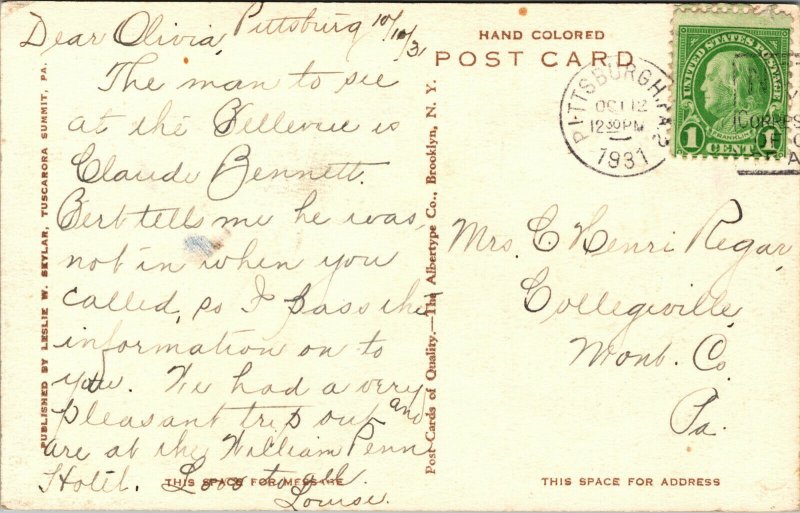 Dear Olivia, Pittsburg 10/10/31
The man to see
at the Bellevue is
Claude Bennett.
Bert tells me he was
not in when you
called, so I pass the
information on to
you. We had a very
pleasant trip out and
are at the William Penn
Hotel. Love to all
Louise.
THIS SPACE FOR MESSAGE
PUBLISHED BY LESLIE W. SEYLAR, TUSCARORA SUMMIT, PA.
Post Cards of Quality.—The Albertype Co., Brooklyn, N. Y.
HAND COLORED
POST CARD
PITTSBURGH, PA. 2
OCT 12
12 30 PM
1931
UNITED STATES POSTAGE
FRANKLIN
1 CENT 1
Mrs. C Henri Regar,
Collegeville,
Mont. Co.
Pa.
THIS SPACE FOR ADDRESS